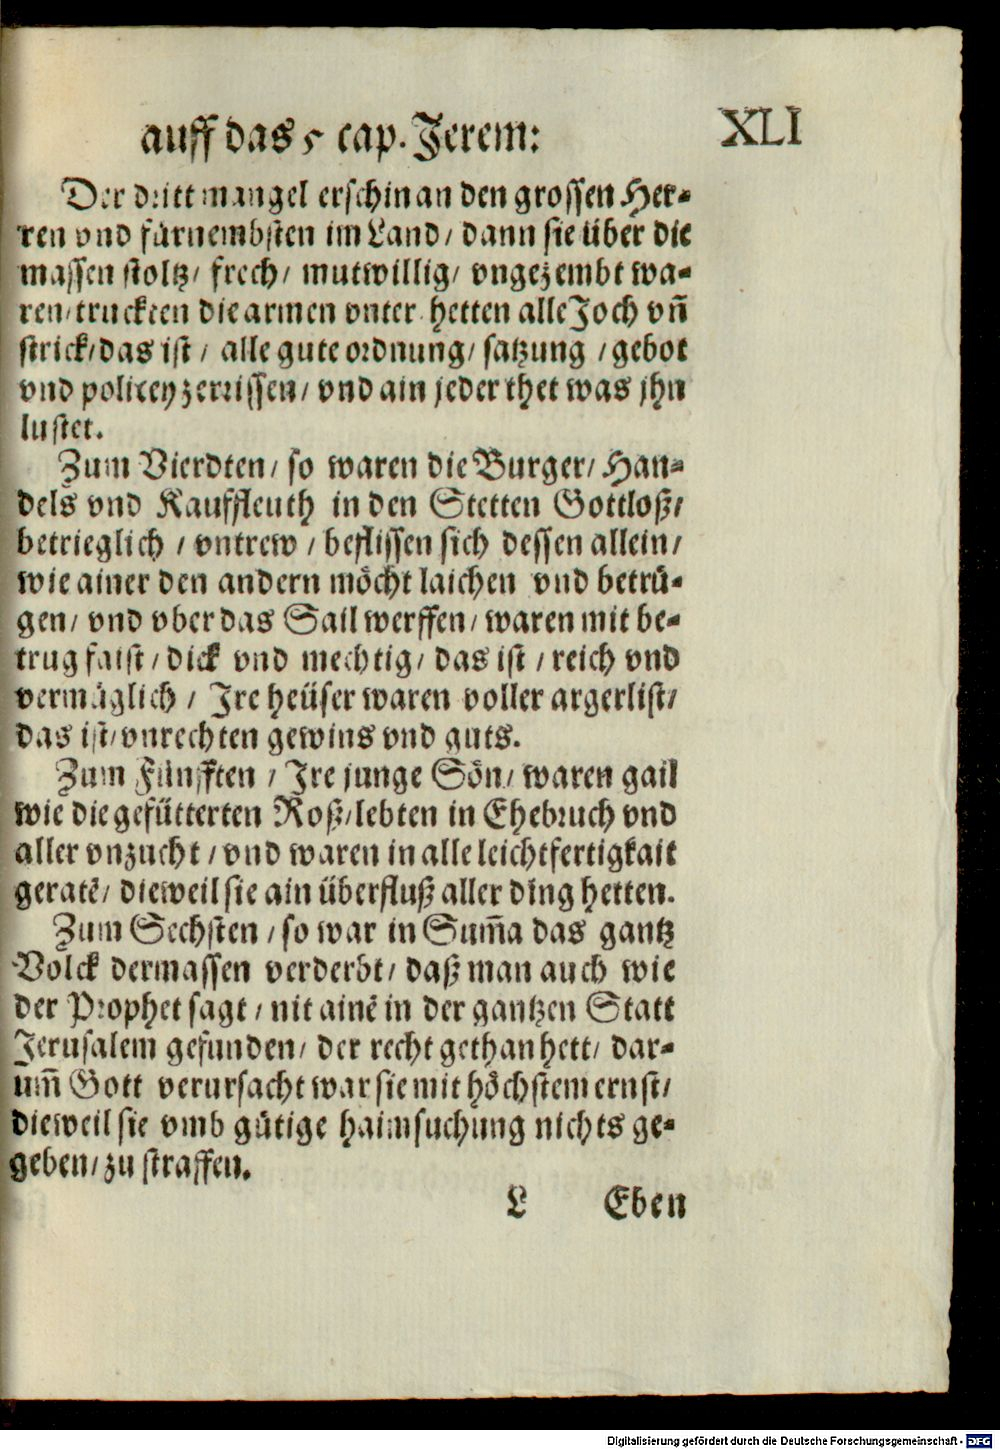 auff das 5 cap. Jerem: XLI
Der dritt mangel erschin an den grossen Her-
ren vnd fürnembsten im Land/ dann sie über die
massen stoltz/ frech/ mutwillig/ vngezembt wa-
ren/ truckten die armen vnter hetten alle Joch vn̄
strick/ das ist / alle gute ordnung/ satzung / gebot
vnd policey zerrissen/ vnd ain jeder thet was jhn
lustet.
Zum Vierdten/ so waren die Burger/ Han-
dels vnd Kauffleuth in den Stetten Gottloß/
betrieglich / vntrew / beflissen sich dessen allein/
wie ainer den andern möcht laichen vnd betrü-
gen/ vnd vber das Sail werffen/ waren mit be-
trug faist/ dick vnd mechtig/ das ist / reich vnd
vermüglich / Jre heüser waren voller argerlist/
das ist/ vnrechten gewins vnd guts.
Zum Fünfften / Jre junge Sön/ waren gail
wie die gefütterten Roß/ lebten in Ehebruch vnd
aller vnzucht / vnd waren in alle leichtfertigkait
geratē/ dieweil sie ain überfluß aller ding hetten.
Zum Sechsten / so war in Sum̄a das gantz
Volck dermassen verderbt/ daß man auch wie
der Prophet sagt / nit ainē in der gantzen Statt
Jerusalem gefunden/ der recht gethan hett/ dar-
um̄ Gott verursacht war sie mit höchstem ernst/
dieweil sie vmb gütige haimsuchung nichts ge-
geben/ zu straffen.
L Eben
Digitalisierung gefördert durch die Deutsche Forschungsgemeinschaft - DFG